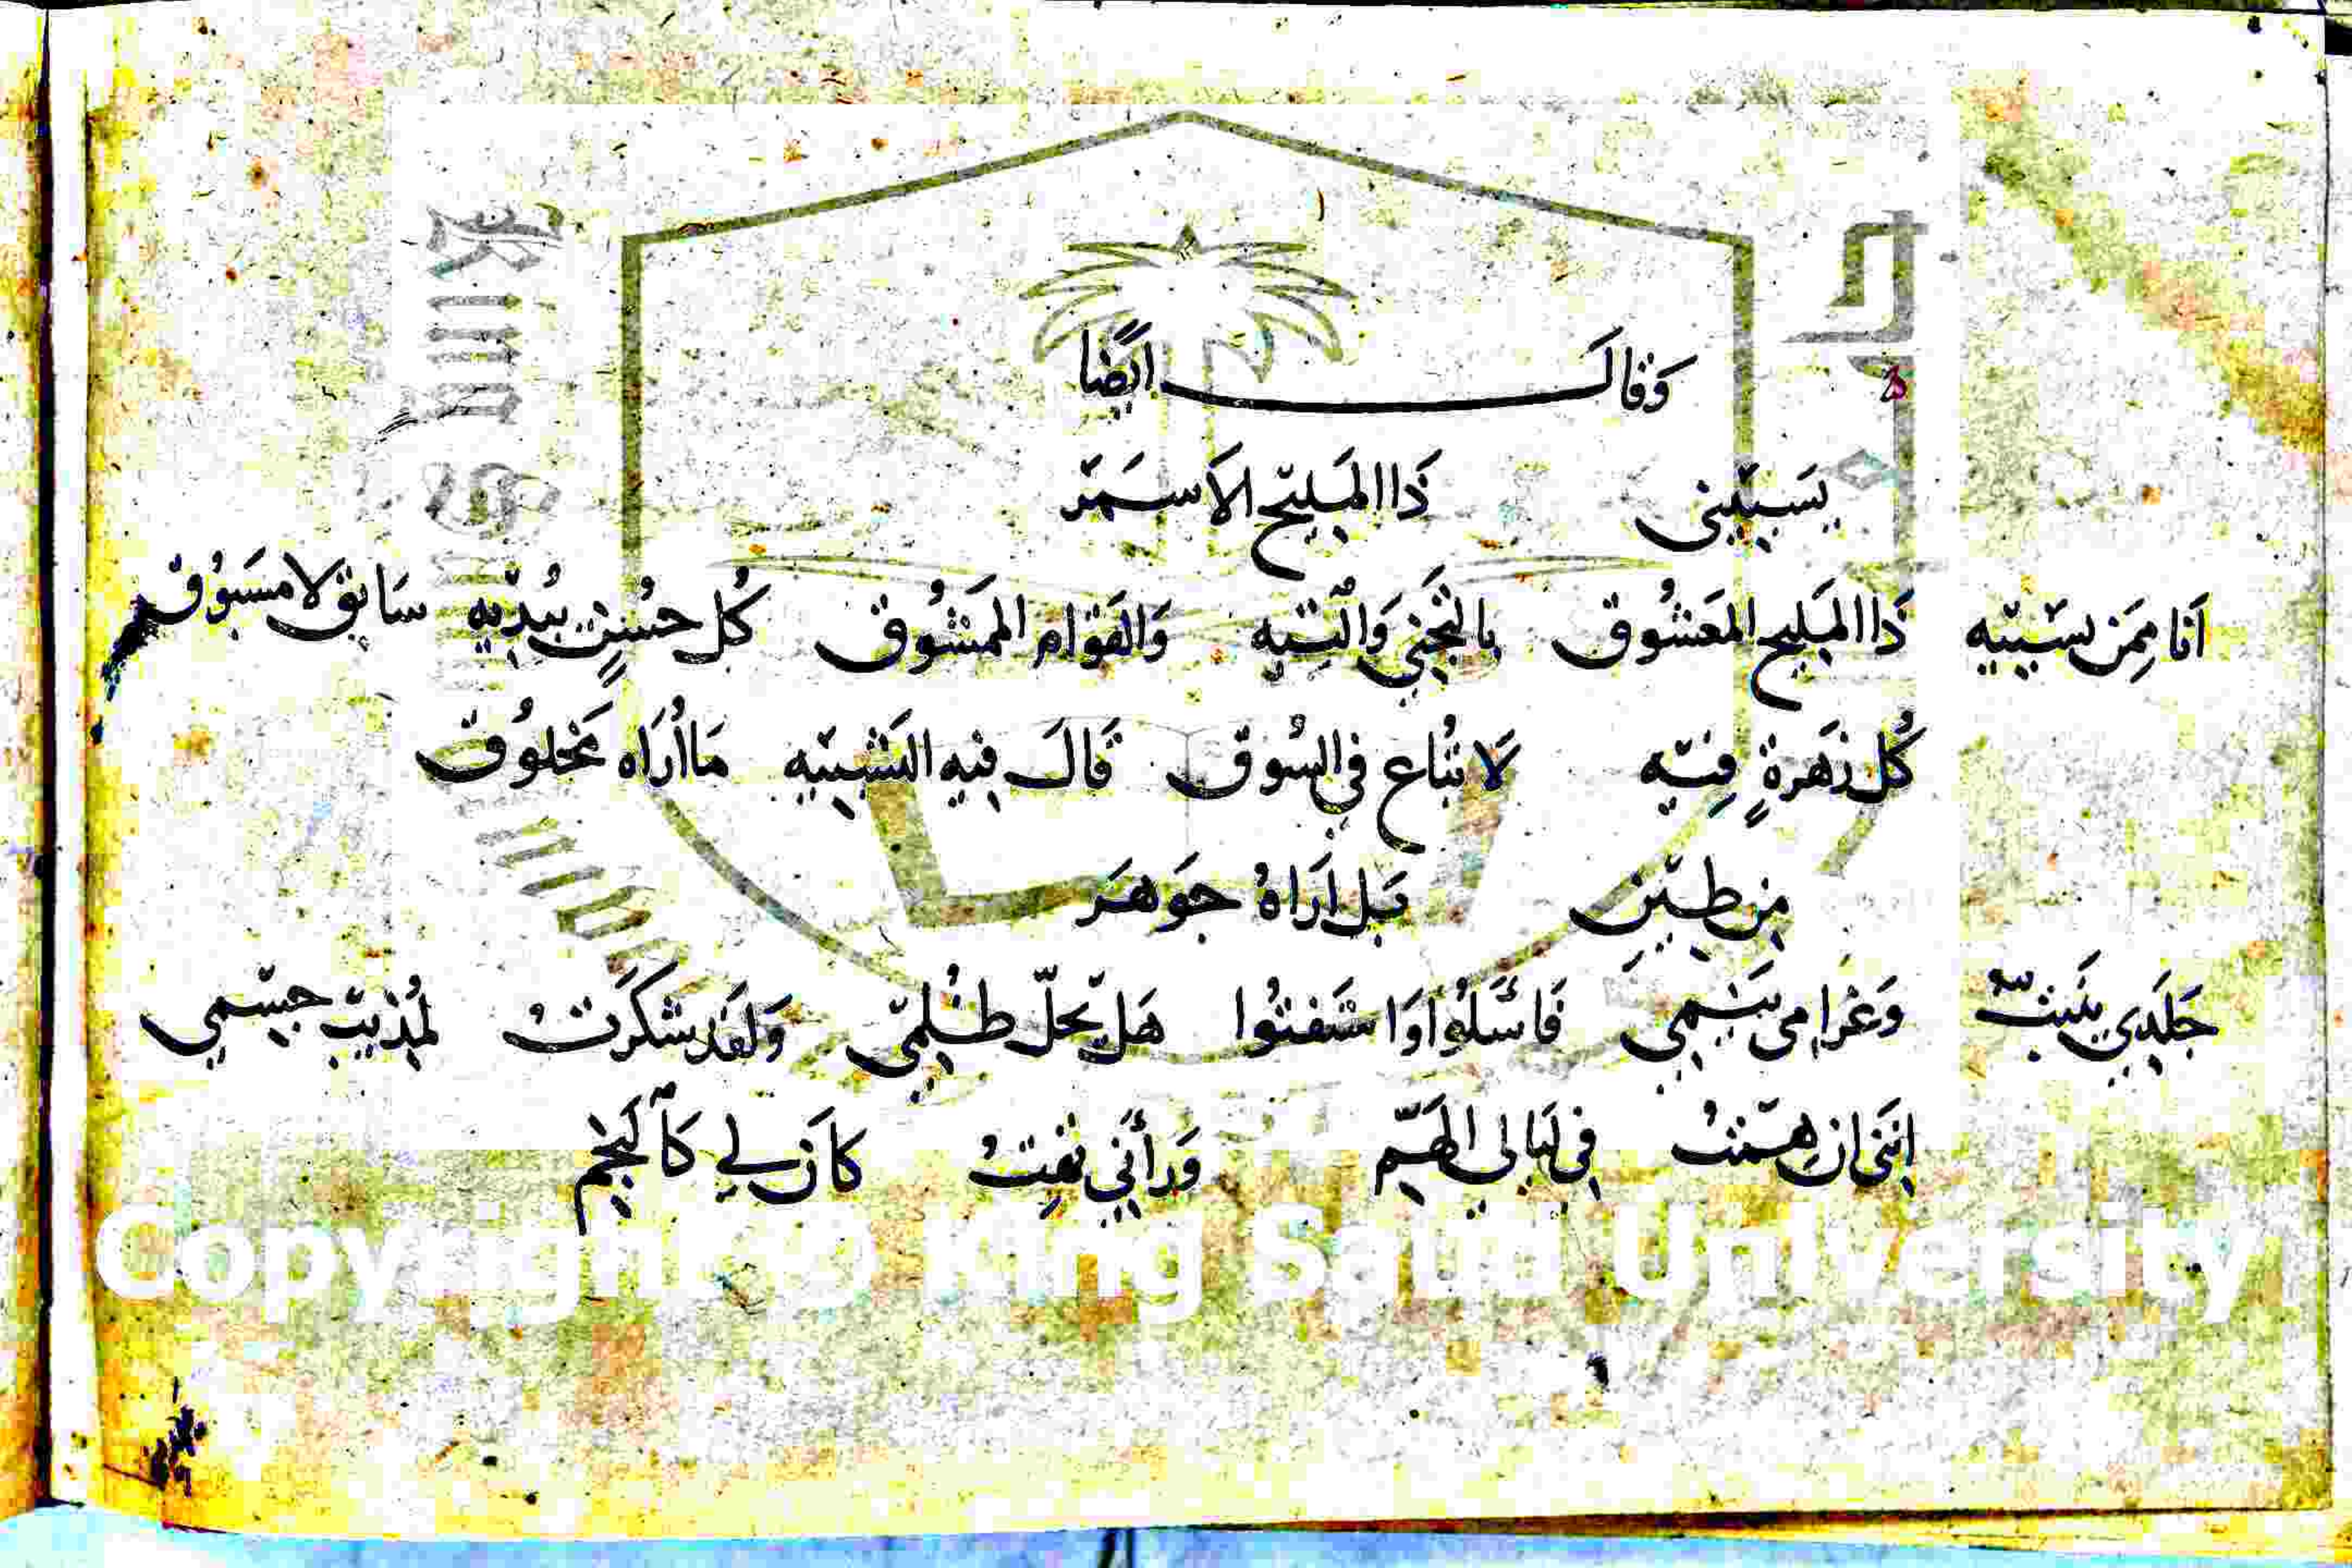 وَقَالَ ايضًا
يسَبيني ذَا المَليح الاَسمَر
اَنا مِمَن يسَبيه ذَا المَليح المَعشُوق بالتجَني وَالتيه وَالقوام الممَشُوق كُل حسُنٍ يبُديه سَابق لا مسَبوُق
كُل زهَرةٍ فيه لاَ تُباع في السُوق قَالَ فيه التشَبيه مَا اُرَاه مَخلوُق
مِن طين بَل اَرَاهُ جوَهَر
جَلَدي وَغَرامي فَاسَلوُا وَاستَفتوُا هَل يحَلّ ظُلمي وَلقَد شكَرَتْ لمُذيب جسمي
اننَي ان همتُ في ليَالي الهَم وَرأني تهتُ كاَن لي كَالنجَم
Copyright © King Saud University